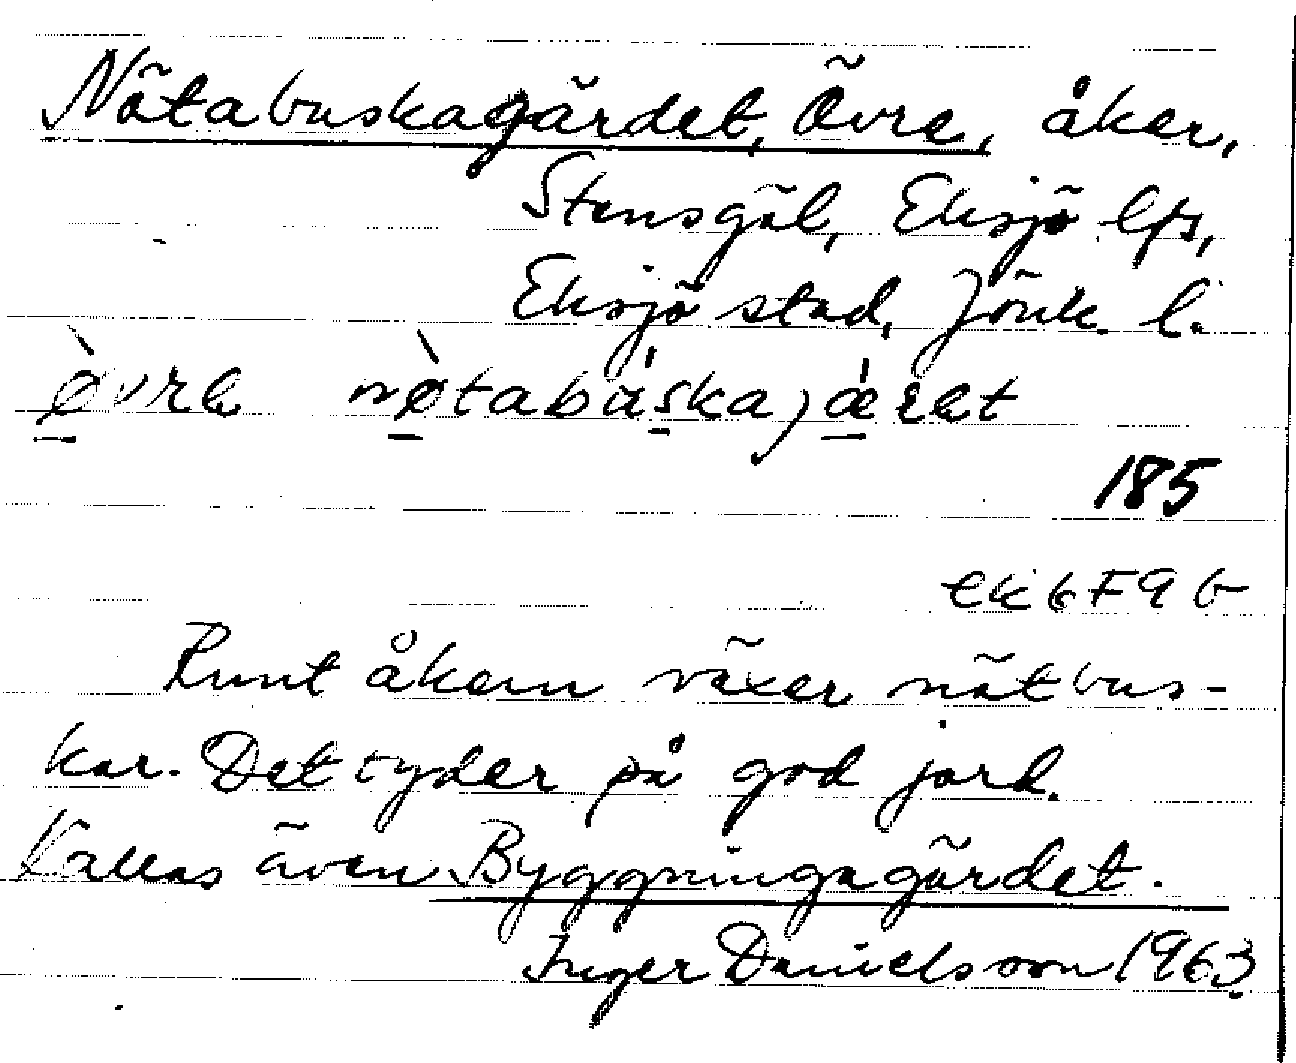 Nötabuskagärdet, Övre, åker,
Stensgöl, Eksjö lfs,
Eksjö stad, Jönk. l.
ø̀vrə nø̀tabùskajæ̀rət
185
ek 6F9b
Runt åkern växer nötbus-
kar. Det tyder på god jord.
Kallas även Byggningagärdet.
Inger Danielsson 1963